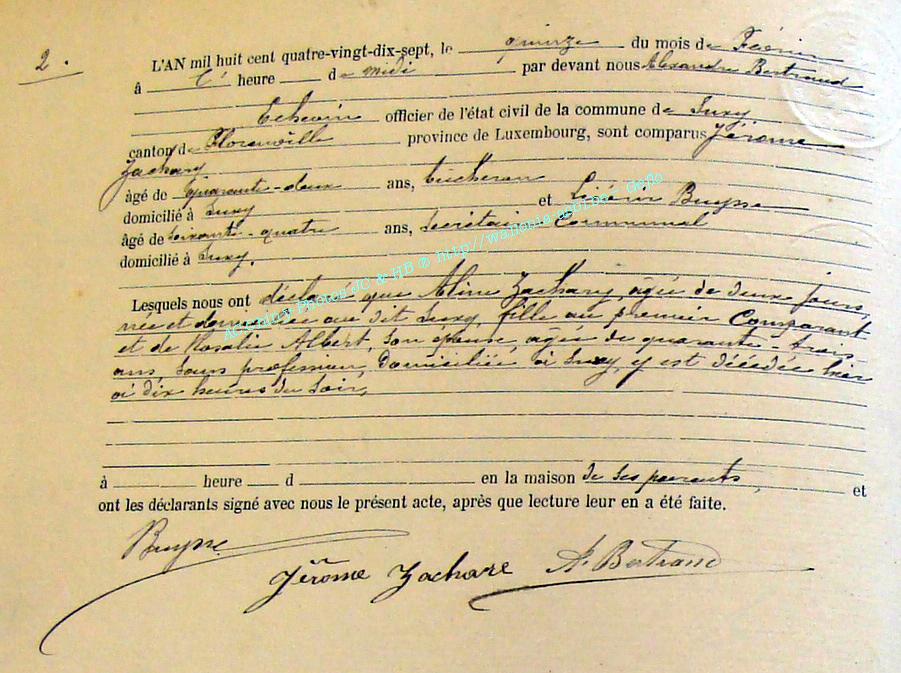 2.
L'AN mil huit cent quatre-vingt-dix-sept, le quinze du mois de Février
à heure de midi par devant nous Alexandre Bertrand
Echevin officier de l'état civil de la commune de Suxy
canton de Florenville province de Luxembourg, sont comparus Jérome
Zachary
âgé de quarante-deux ans, bucheron
domicilié à Suxy et Buysse
âgé de soixante-quatre ans, secrétaire Communal
domicilié à Suxy.
Lesquels nous ont déclaré que Aline Zachary, agée de deux jours,
née et domiciliée au dit Suxy, fille au premier Comparant
et de Rosalie Albert, son épouse, agée de quarante-trois
ans, sans profession, domiciliée à Suxy, y est décédée hier
à dix heures du soir,
à heure d en la maison de ses parents, et
ont les déclarants signé avec nous le présent acte, après que lecture leur en a été faite.
Buysse
Jérome Zachare A. Bertrand
Photos JC & HB © http://wallonia-asbl.be - Geño